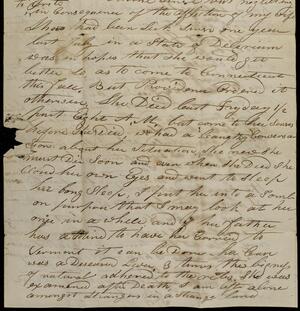 to write
in consequence of the affliction of my wife
She had been Sick Since one year
last July in a State of Delerium
was in hopes that She would get
better so as to come to Connecticut
this fall. But Providence ordered it
otherwise She Died last Friday 1/2
past Eight A.M. but come to her Senses
before we had a Conversa
tion about her Situation She new She
must Die Soon and even when She Died She
Closed her own Eyes and went to Sleep
her long Sleep I put her into a Tomb
on purpose that I may look at her
once in a while and if her father
has a mind to have her Carried to
Vermont it can be Done her Case
was a Diseased Liver 3 times the Size
of natural adhered to the She was
examened after Death I am left alone
amongst Strangers in a Strange land